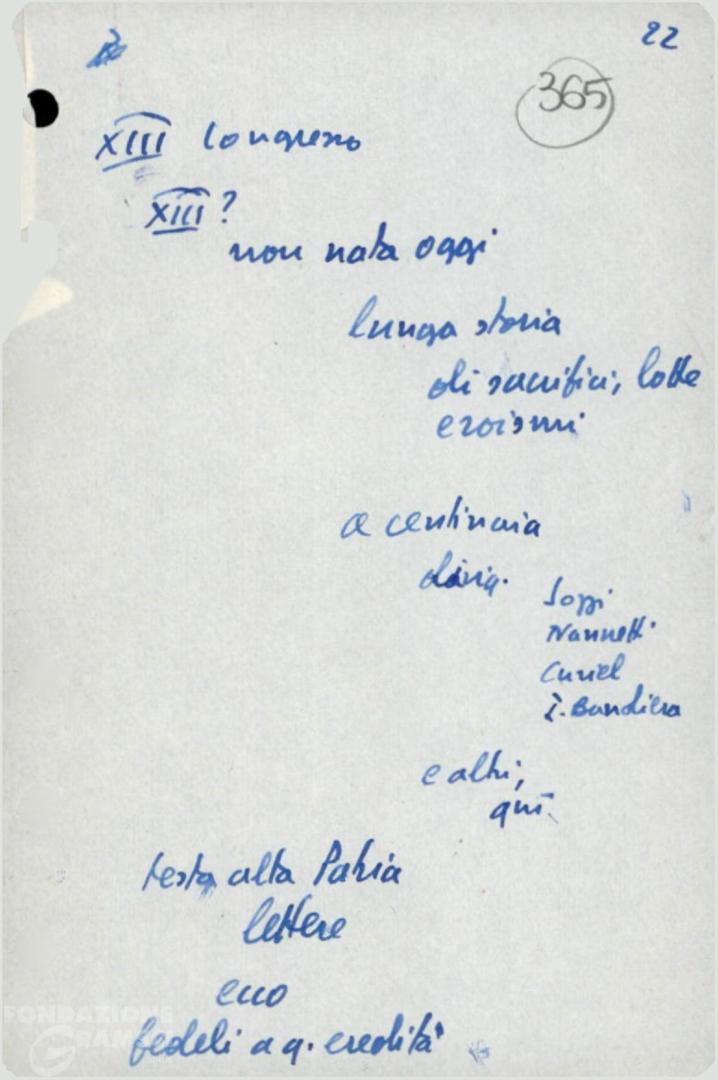 22
365
XIII Congresso
XIII?
non nata oggi
lunga storia
di sacrifici, lotte
eroismi
a centinaia
Sozzi
Nannetti
Curiel
I. Bandiera
e altri,
qui
testa alta Patria
lettere
ecco
fedeli a q. eredità
FONDAZIONE
GRAMSCI